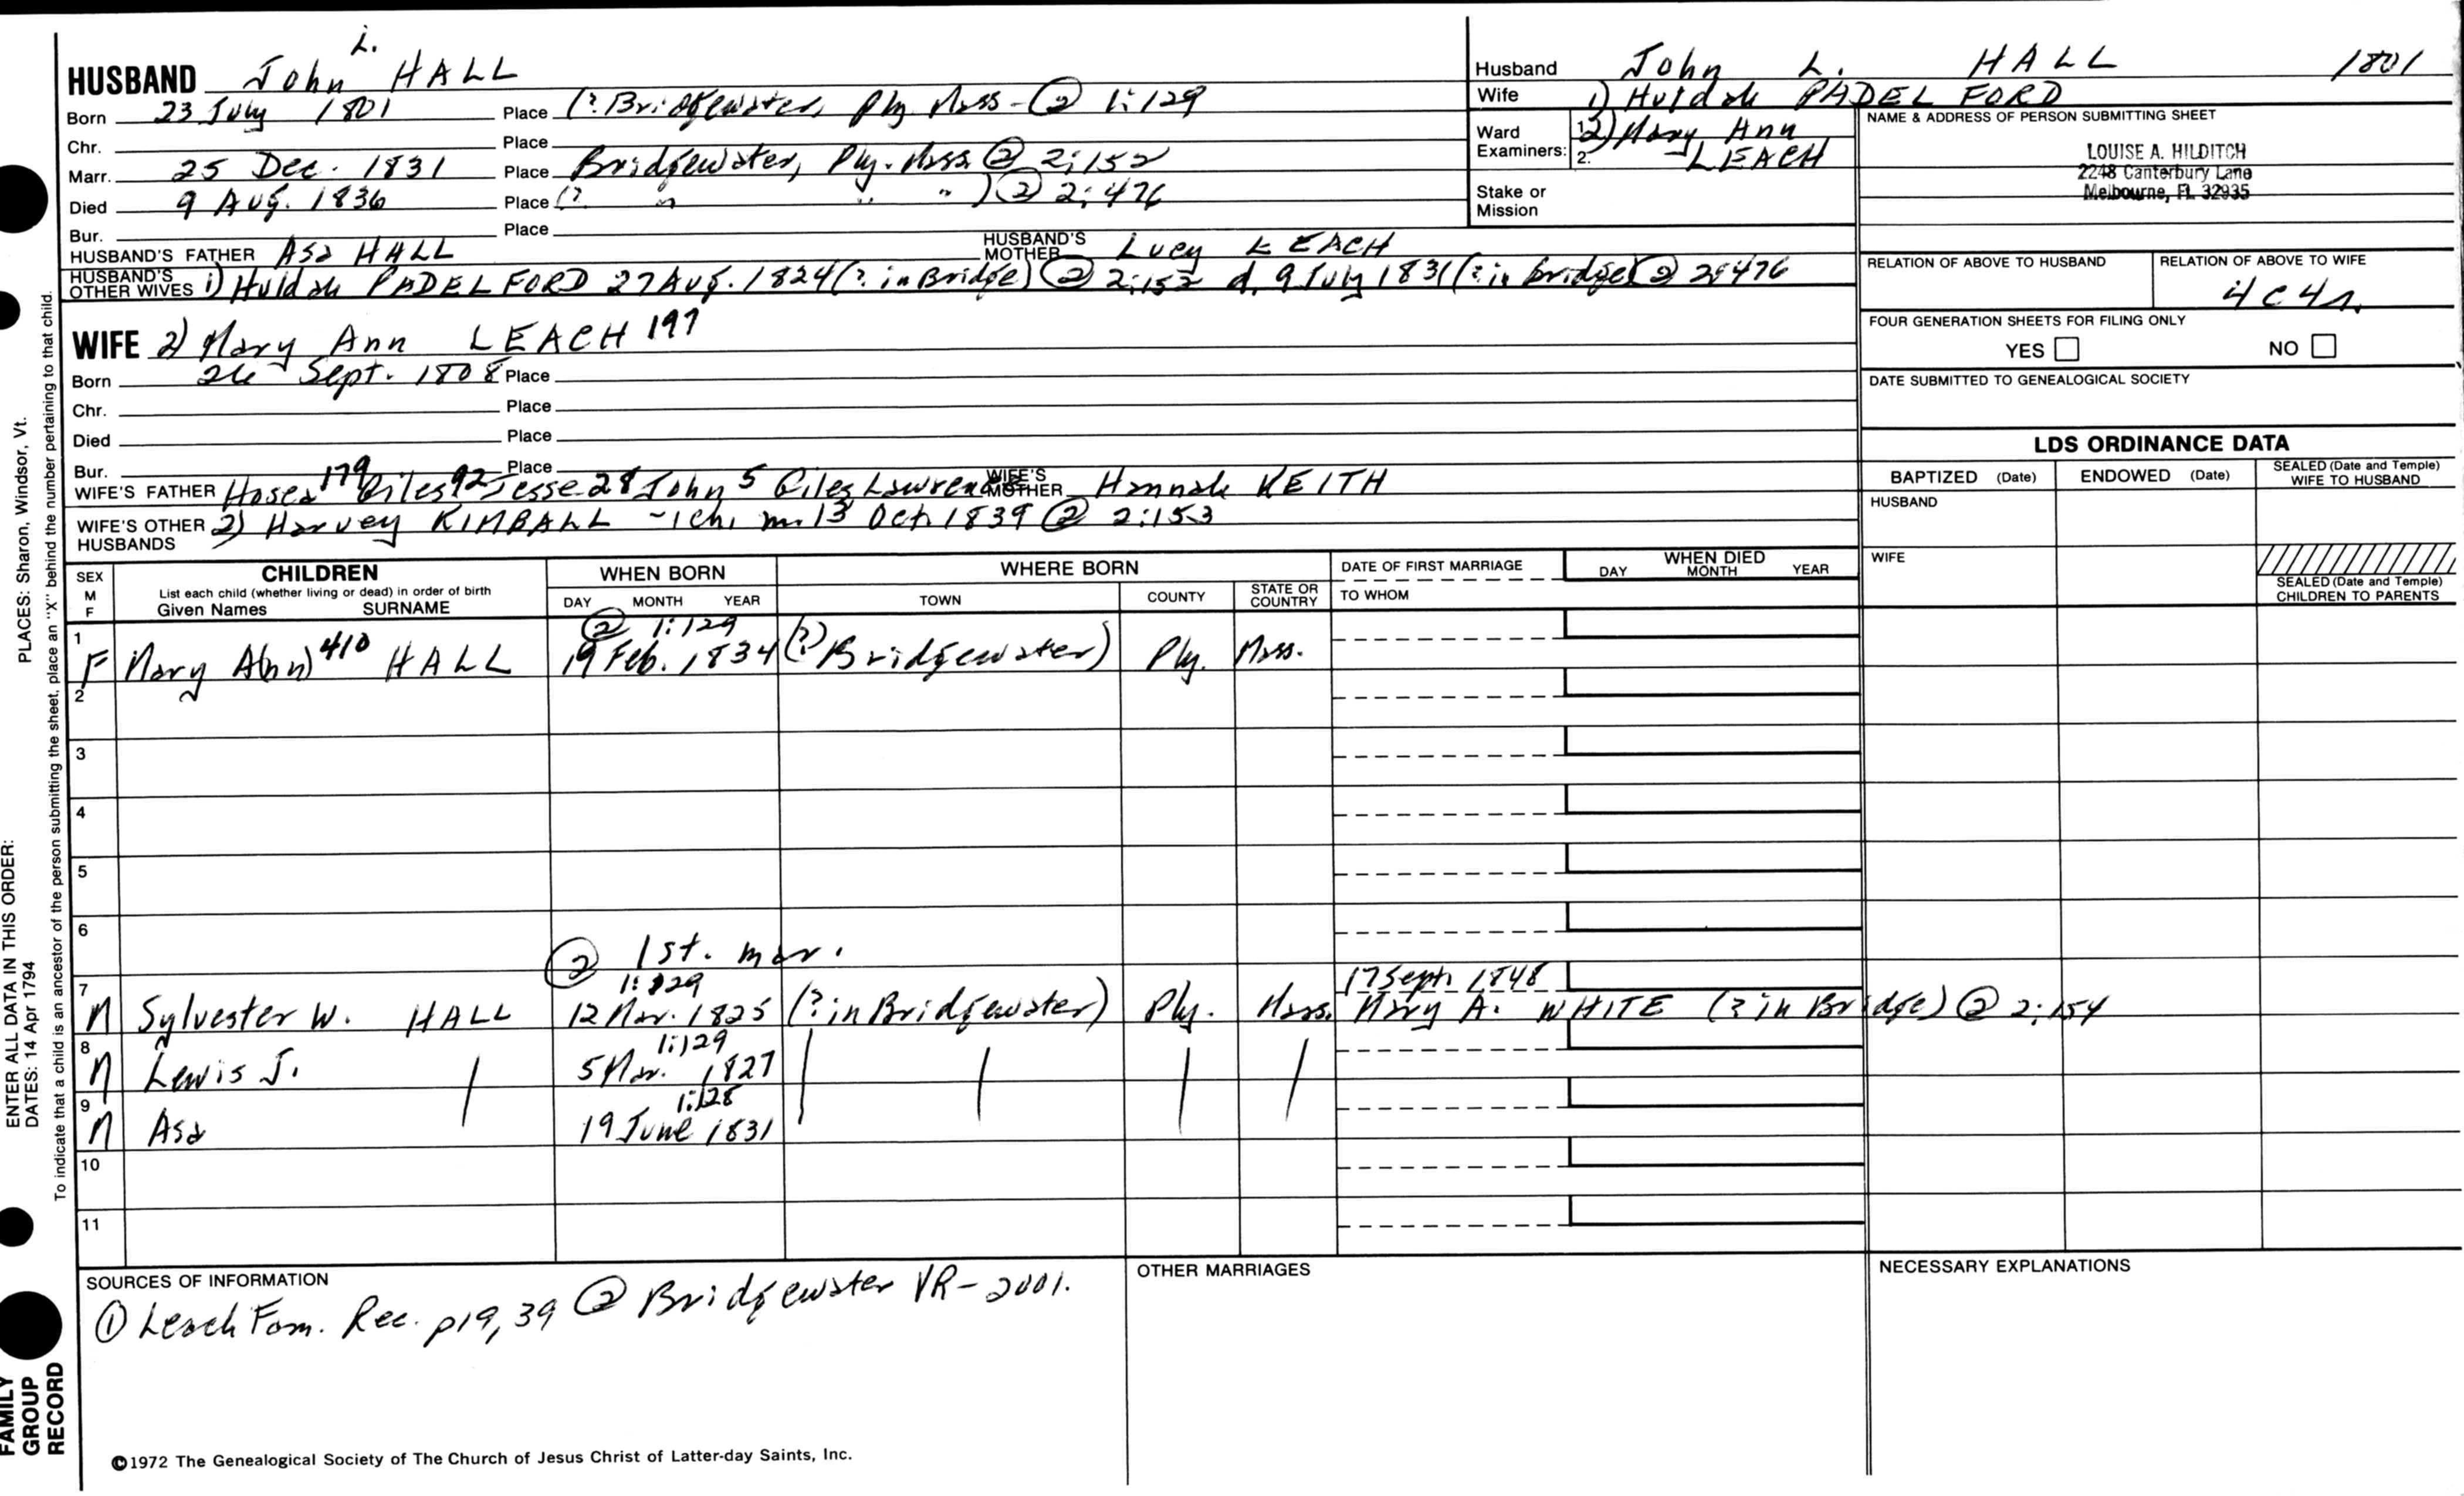 L.
HUSBAND John HALL
Born 23 July 1801 Place (? Bridgewater, Ply. Mass - ② 1:129
Chr. Place
Marr. 25 Dec. 1831 Place Bridgewater, Ply. Mass ② 2:152
Died 9 Aug. 1836 Place (? " " " ) ② 2:476
Bur. Place
HUSBAND'S FATHER Asa HALL HUSBAND'S MOTHER Lucy LEACH
HUSBAND'S OTHER WIVES 1) Huldah PADELFORD 27 Aug. 1824 (? in Bridge) ② 2:152 d. 9 July 1831 (? in bridge) ② 2:476
Husband John L. HALL 1801
Wife 1) Huldah PADELFORD
Ward Examiners: 1. 2) Mary Ann
2. LEACH
Stake or Mission
NAME & ADDRESS OF PERSON SUBMITTING SHEET
LOUISE A. HILDITCH
2248 Canterbury Lane
Melbourne, FL 32935
RELATION OF ABOVE TO HUSBAND RELATION OF ABOVE TO WIFE
4C4r.
FOUR GENERATION SHEETS FOR FILING ONLY
YES NO
DATE SUBMITTED TO GENEALOGICAL SOCIETY
WIFE 2) Mary Ann LEACH 197
Born 26 Sept. 1808 Place
Chr. Place
Died Place
Bur. Place
WIFE'S FATHER Hosea 179 Giles 92 Jesse 28 John 5 Giles Lawrence WIFE'S MOTHER Hannah KEITH
WIFE'S OTHER HUSBANDS 2) Harvey KIMBALL - 1ch. m. 13 Oct. 1839 ② 2:153
LDS ORDINANCE DATA
BAPTIZED (Date) ENDOWED (Date) SEALED (Date and Temple) WIFE TO HUSBAND
HUSBAND
WIFE
SEALED (Date and Temple) CHILDREN TO PARENTS
SEX M F
CHILDREN
List each child (whether living or dead) in order of birth
Given Names SURNAME
WHEN BORN
DAY MONTH YEAR
WHERE BORN
TOWN COUNTY STATE OR COUNTRY
DATE OF FIRST MARRIAGE
TO WHOM
WHEN DIED
DAY MONTH YEAR
② 1:129
1 F Mary A(nn) 410 HALL 19 Feb. 1834 (? Bridgewater) Ply. Mass.
2
3
4
5
6
② 1st. mar.
1:129 17 Sept. 1848
7 M Sylvester W. HALL 12 Mar. 1825 (? in Bridgewater) Ply. Mass. Mary A. WHITE (? in Bridge) ② 2:154
1:129
8 M Lewis J. | 5 Mar. 1827 | | | |
1:128
9 M Asa 19 June 1831
10
11
SOURCES OF INFORMATION
① Leach Fam. Rec. p19, 39 ② Bridgewater VR - 2001.
OTHER MARRIAGES
NECESSARY EXPLANATIONS
©1972 The Genealogical Society of The Church of Jesus Christ of Latter-day Saints, Inc.
ENTER ALL DATA IN THIS ORDER:
DATES: 14 Apr 1794 PLACES: Sharon, Windsor, Vt.
To indicate that a child is an ancestor of the person submitting the sheet, place an "X" behind the number pertaining to that child.
FAMILY
GROUP
RECORD